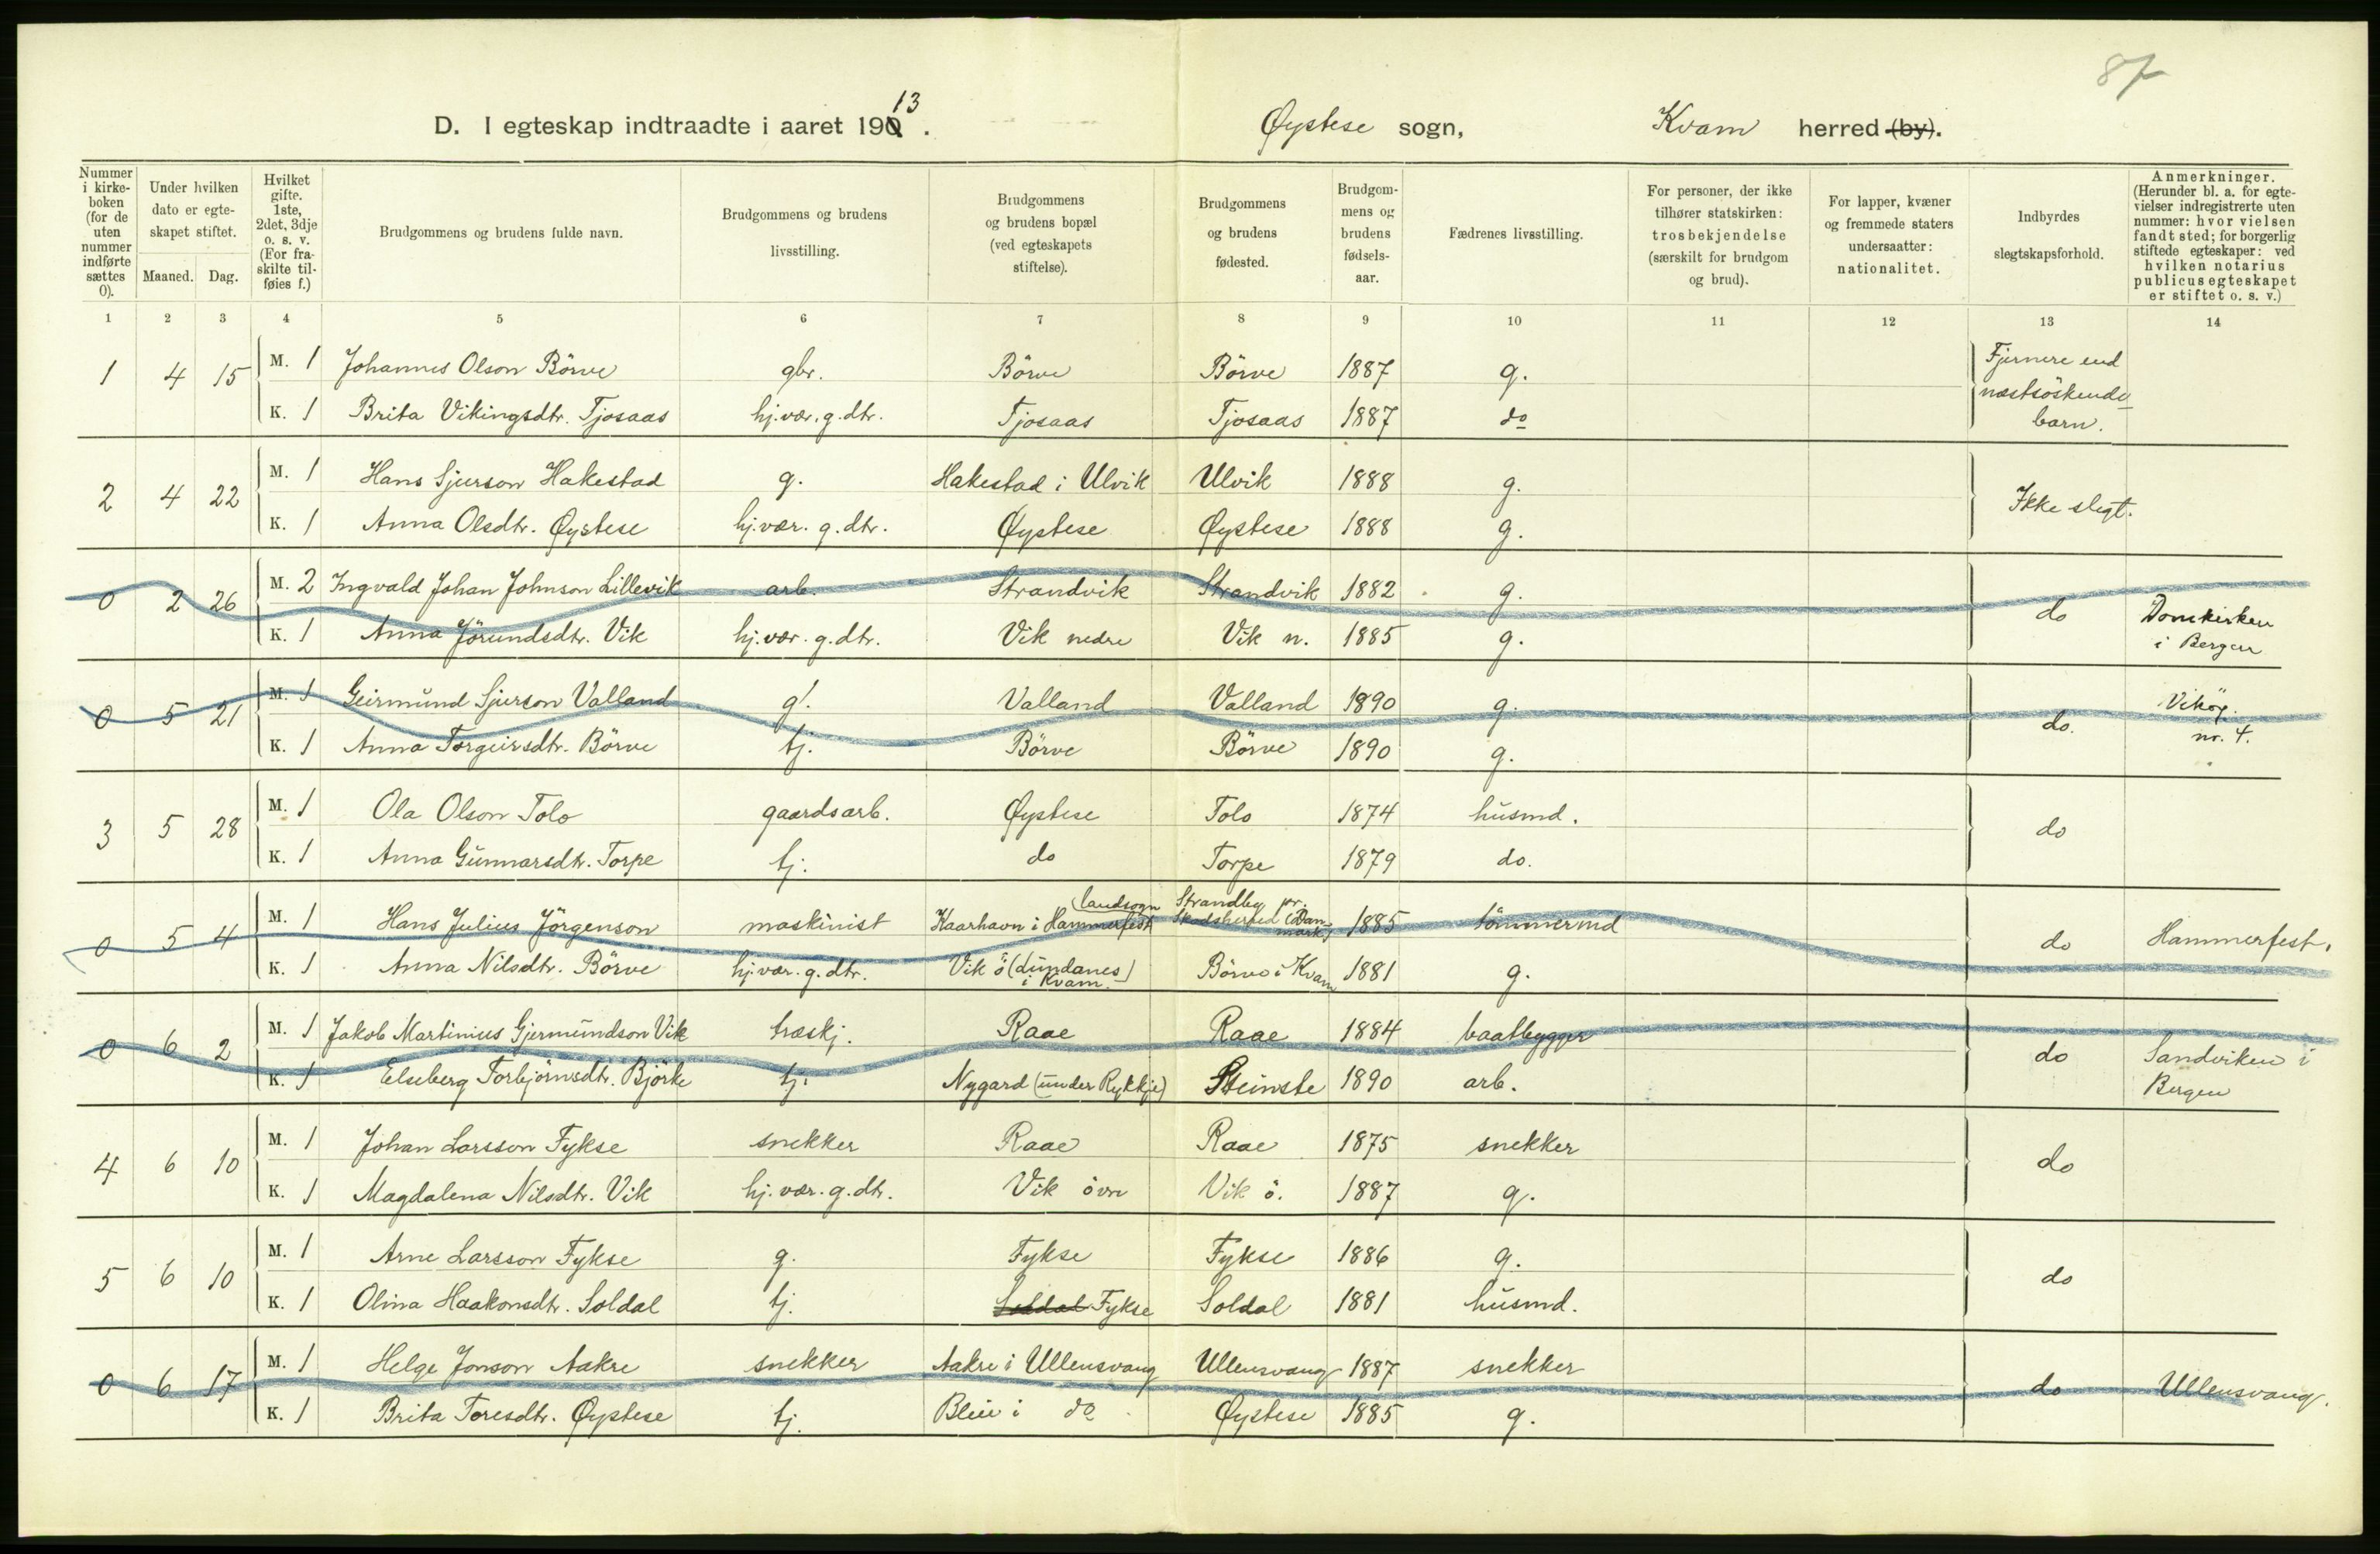 87
D. I egteskap indtraadte i aaret 1913. Øystese sogn, Kvam herred (by).
Nummer i kirke-boken (for de uten nummer indførte sættes 0).
Under hvilken dato er egte-skapet stiftet.
Maaned. Dag.
Hvilket gifte. 1ste, 2det, 3dje o. s. v. (For fra-skilte til-føies f.)
Brudgommens og brudens fulde navn.
Brudgommens og brudens livsstilling.
Brudgommens og brudens bopæl (ved egteskapets stiftelse).
Brudgommens og brudens fødested.
Brudgom-mens og brudens fødsels-aar.
Fædrenes livsstilling.
For personer, der ikke tilhører statskirken: trosbekjendelse (særskilt for brudgom og brud).
For lapper, kvæner og fremmede staters undersaatter: nationalitet.
Indbyrdes slegtskapsforhold.
Anmerkninger. (Herunder bl. a. for egte-vielser indregistrerte uten nummer: hvor vielsen fandt sted; for borgerlig stiftede egteskaper: ved hvilken notarius publicus egteskapet er stiftet o. s. v.)
1 2 3 4 5 6 7 8 9 10 11 12 13 14
1 4 15 M. 1 Johannes Olson Börve gbr. Börve Börve 1887 g. Fjernere end næstsöskende barn.
K. 1 Brita Vikingsdtr. Tjosaas hj.vær. g.dtr. Tjosaas Tjosaas 1887 do
2 4 22 M. 1 Hans Sjurson Hakestad g. Hakestad i Ulvik Ulvik 1888 g. Ikke slegt.
K. 1 Anna Olsdtr. Øystese hj.vær. g.dtr. Øystese Øystese 1888 g.
0 2 26 M. 2 Ingvald Johan Johnson Lillevik arb. Strandvik Strandvik 1882 g. do Domkirken i Bergen
K. 1 Anna Jörundsdtr. Vik hj.vær. g.dtr. Vik nedre Vik n. 1885 g.
0 5 21 M. 1 Geirmund Sjurson Valland g. Valland Valland 1890 g. do. Viköy. nr. 4.
K. 1 Anna Torgeirsdtr. Börve tj. Börve Börve 1890 g.
3 5 28 M. 1 Ola Olson Tolo gaardsarb. Øystese Tolo 1874 husmd. do
K. 1 Anna Gunnarsdtr. Torpe tj. do Torpe 1879 do.
0 5 4 M. 1 Hans Julius Jörgenson maskinist Kaarhavn i Hammerfest landsogn Strandby pr. (Danmark) 1885 tömmermd do Hammerfest.
K. 1 Anna Nilsdtr. Börve hj.vær. g.dtr. Vik ö (Lundanes) i Kvam. Börve i Kvam 1881 g.
0 6 2 M. 1 Jakob Martinius Gjermundson Vik træskj. Raae Raae 1884 baatbygger do Sandviken i Bergen
K. 1 Elseberg Torbjörnsdtr. Björke tj. Nygard (under Rykkje) Steinstø 1890 arb.
4 6 10 M. 1 Johan Larsson Fykse snekker Raae Raae 1875 snekker do
K. 1 Magdalena Nilsdtr. Vik hj.vær. g.dtr. Vik övre Vik ö. 1887 g.
5 6 10 M. 1 Arne Larsson Fykse g. Fykse Fykse 1886 g. do
K. 1 Olina Haakonsdtr. Soldal tj. Soldal Fykse Soldal 1881 husmd.
0 6 17 M. 1 Helge Jonson Aakre snekker Aakre i Ullensvang Ullensvang 1887 snekker do Ullensvang.
K. 1 Brita Toresdtr. Øystese tj. Bleie i do Øystese 1885 g.